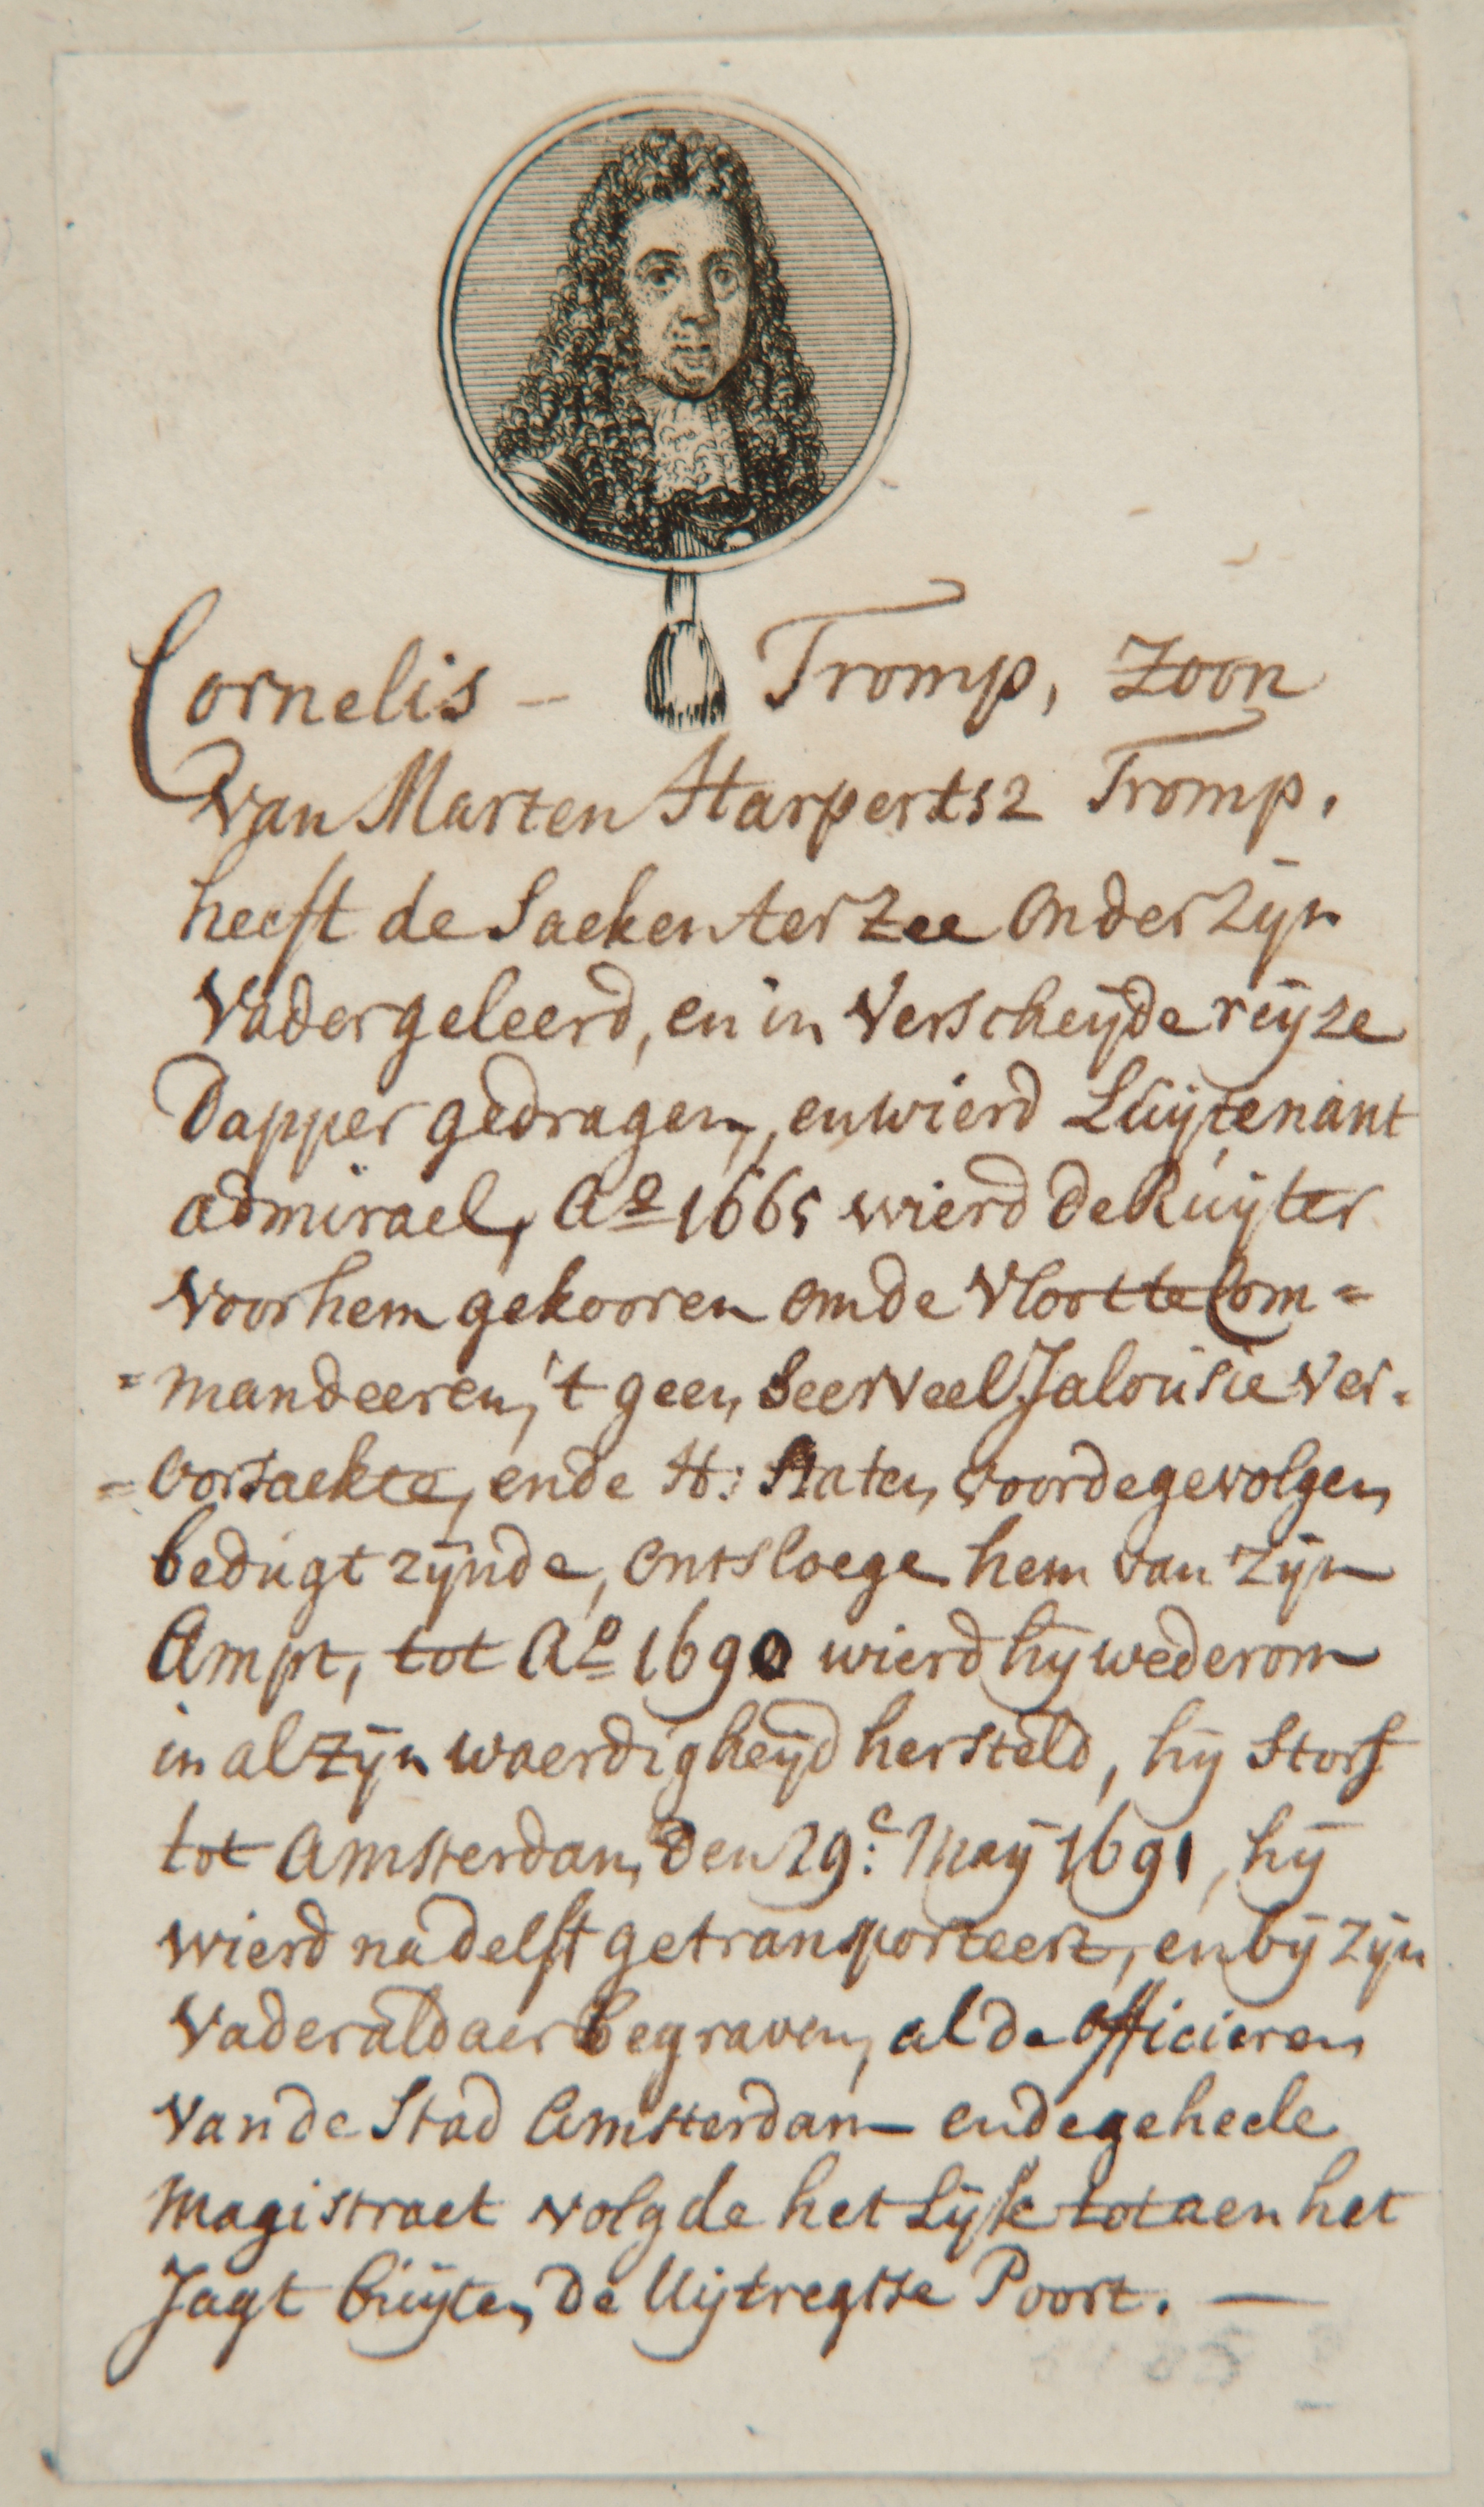 Cornelis - Tromp, Zoon
van Marten Harpertsz Tromp,
heeft de Saeken ter Zee onder zijn
Vader geleerd, en in verscheÿde reÿze
Dapper gedragen, en wierd Luÿtenant
admirael, Aº 1665 wierd de Ruÿter
voor hem gekooren om de Vloot te Com=
=mandeeren, 't geen seer veel Jalousie ver=
=oorsaekte, en de H: Staten, voor de gevolgen
bedugt zÿnde, ontsloege hem van zÿn
Ampt, tot Aº 1690 wierd hÿ wederom
in al zÿn waerdigheÿd hersteld, hÿ storf
tot Amsterdam den 29.e Maÿ 1691, hÿ
wierd na delft getransporteert, en bÿ zÿn
Vader aldaer begraven, al de officieren
van de Stad Amsterdam en de geheele
Magistraet volgde het Lÿk tot aen het
Jagt buÿten de Uÿtregtse Poort. —